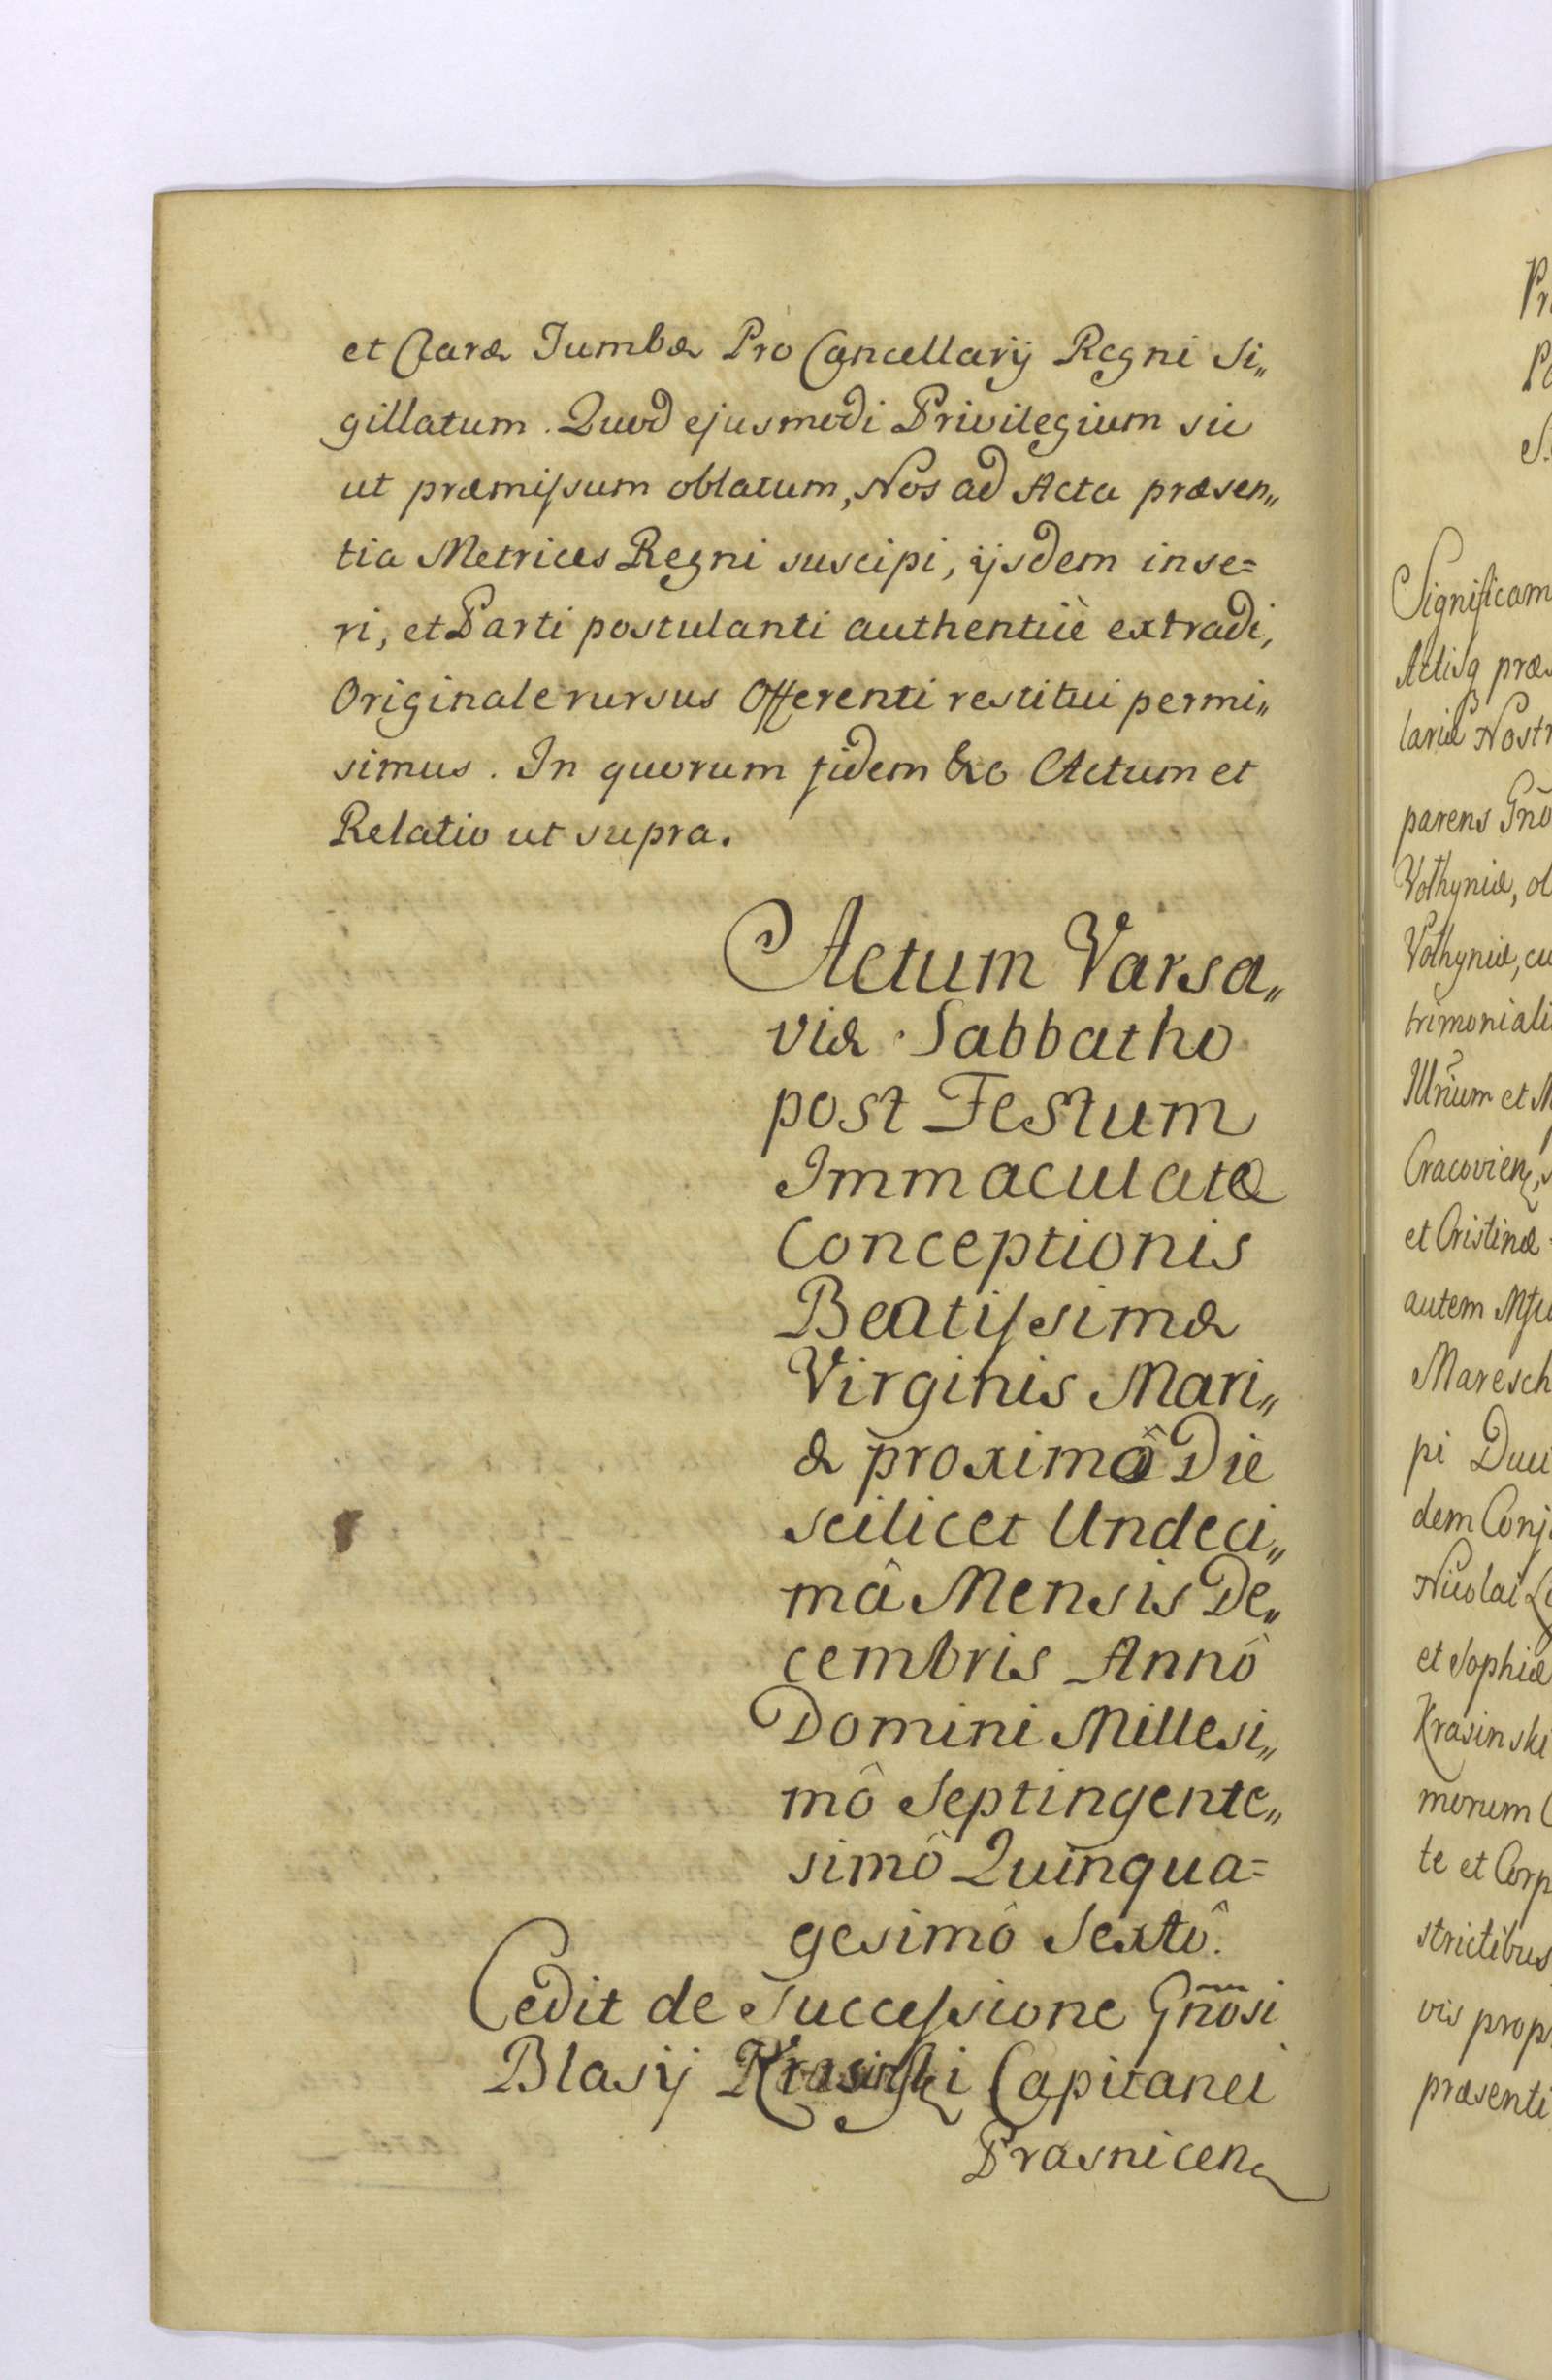 et Claræ Tumbæ Pro Cancellarÿ Regni Si„
gillatum. Quod ejusmodi Privilegium sic
ut præmissum oblatum, Nos ad Acta præsen„
tia Metrices Regni suscipi, ijsdem inse=
ri, et Parti postulanti authenticè extradi,
Originale rursus Offerenti restitui permi„
simus. In quorum fidem &c Actum et
Relatio ut supra.
Actum Varsa„
viæ Sabbatho
post Festum
Immaculatæ
Conceptionis
Beatissimæ
Virginis Mari„
æ proximô Die
scilicet Undeci„
mâ Mensis De„
cembris Annô
Domini Millesi„
mô Septingente„
simô Quinqua=
gesimô Sextô.
Cedit de Successione Gñosi
Blasÿ Krasinski Capitanei
Prasnicen
Pr
Po
S.
Significam
Actisq præs
lariæ Nostr
parens Gño
Volhyniæ, ol
Volhyniæ, cu
trimoniali
Illrium et M
Cracovien, s
et Cristinæ
autem
Maresch
pi Duci
dem Conj
Nicolai
et Sophiæ
Krasinski
morum C
te et Corp
strictibus
vis prop
præsenti